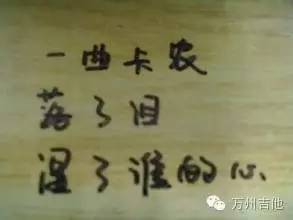 一曲卡农
落了泪
湿了谁的心
万州吉他